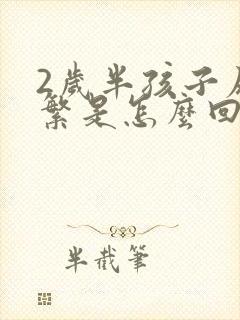 2歲半孩子
繁是怎麼回
半截筆